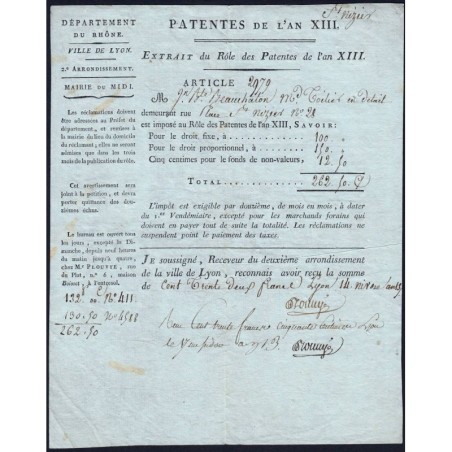 St Nizier
DÉPARTEMENT
DU RHÔNE.
VILLE DE LYON.
2.e ARRONDISSEMENT.
MAIRIE DU MIDI.
Les réclamations doivent
être adressées au Préfet du
département, et remises
à la mairie du lieu du domicile
du réclamant, elles ne seront
admises que dans les trois
mois de la publication du rôle.
Cet avertissement sera
joint à la pétition, et devra
porter quittance des douzièmes
échus.
Le bureau est ouvert
tous les jours, excepté le Dimanche,
depuis le
matin jusqu'à
chez M.r PROTTE, rue
du Plat, n.° 6, maison
à l'entresol.
132 " N.o 411
130.50 N.o 4518
262.50
PATENTES DE L'AN XIII.
Extrait du Rôle des Patentes de l'an XIII.
ARTICLE 2979
M Jn Bte Beauchaton Md Toilier en détail
demeurant rue St Nizier No 28
est imposé au Rôle des Patentes de l'an XIII, SAVOIR:
Pour le droit fixe, à 100 "
Pour le droit proportionnel, à 150 "
Cinq centimes pour le fonds de non-valeurs, 12 50
TOTAL 262 50
L'impôt est exigible par douzième, de mois en mois, à dater
du 1.er Vendémiaire, excepté pour les marchands forains qui
doivent en payer tout de suite la totalité. Les réclamations ne
suspendent point le paiement des taxes.
JE soussigné, Receveur du deuxième arrondissement
de la ville de Lyon, reconnais avoir reçu la somme
de Cent Trente deux francs Lyon 14 nivose an 13
Plus Cent trente francs cinquante centimes Lyon
le an 13